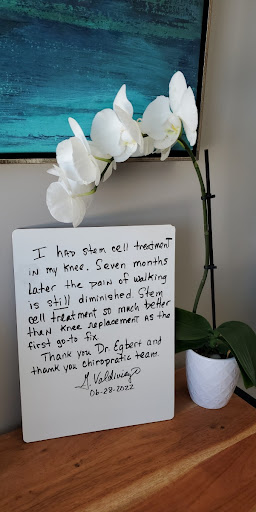 I HAD stem cell treatment
in my knee. Seven months
later the pain of walking
is still diminished. Stem
cell treatment so much better
than knee replacement as the
first go-to fix.
Thank you Dr. Egbert and
thank you chiropratic team.
G. Valdiviezo
06-28-2022